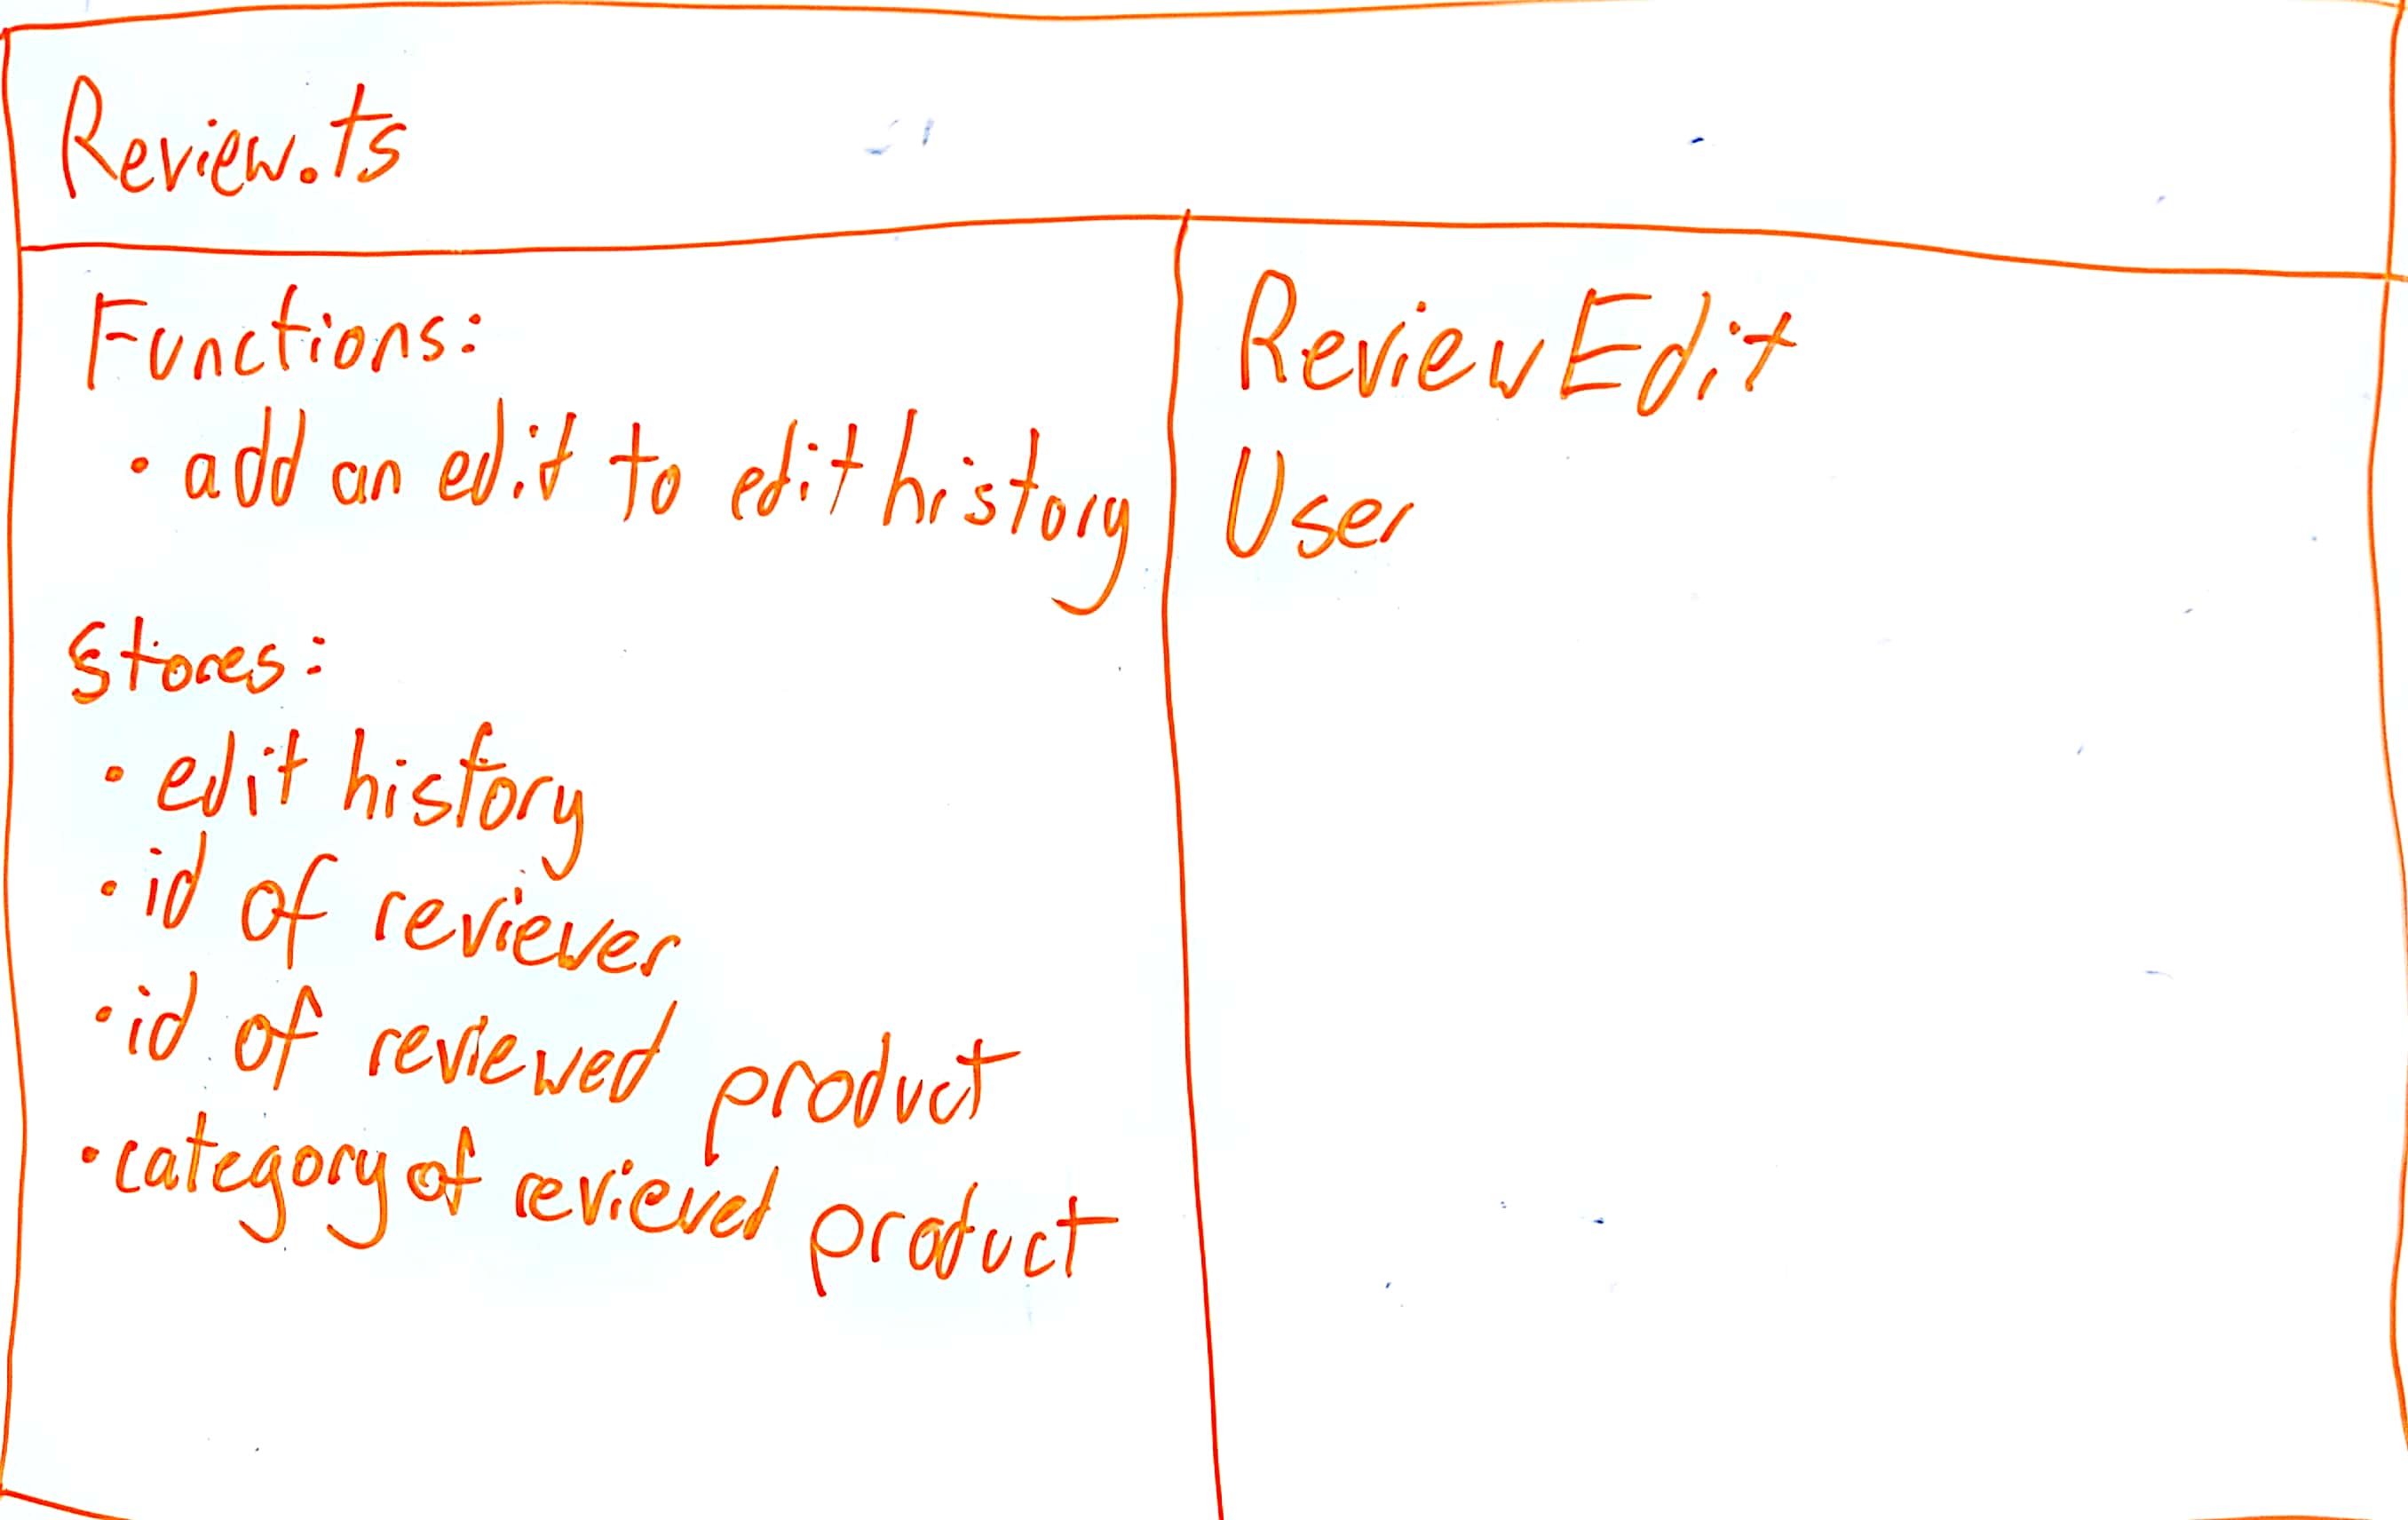 Review.ts
Functions:
• add an edit to edit history
Stores:
• edit history
• id of reviewer
• id of reviewed product
• category of reviewed product
ReviewEdit
User